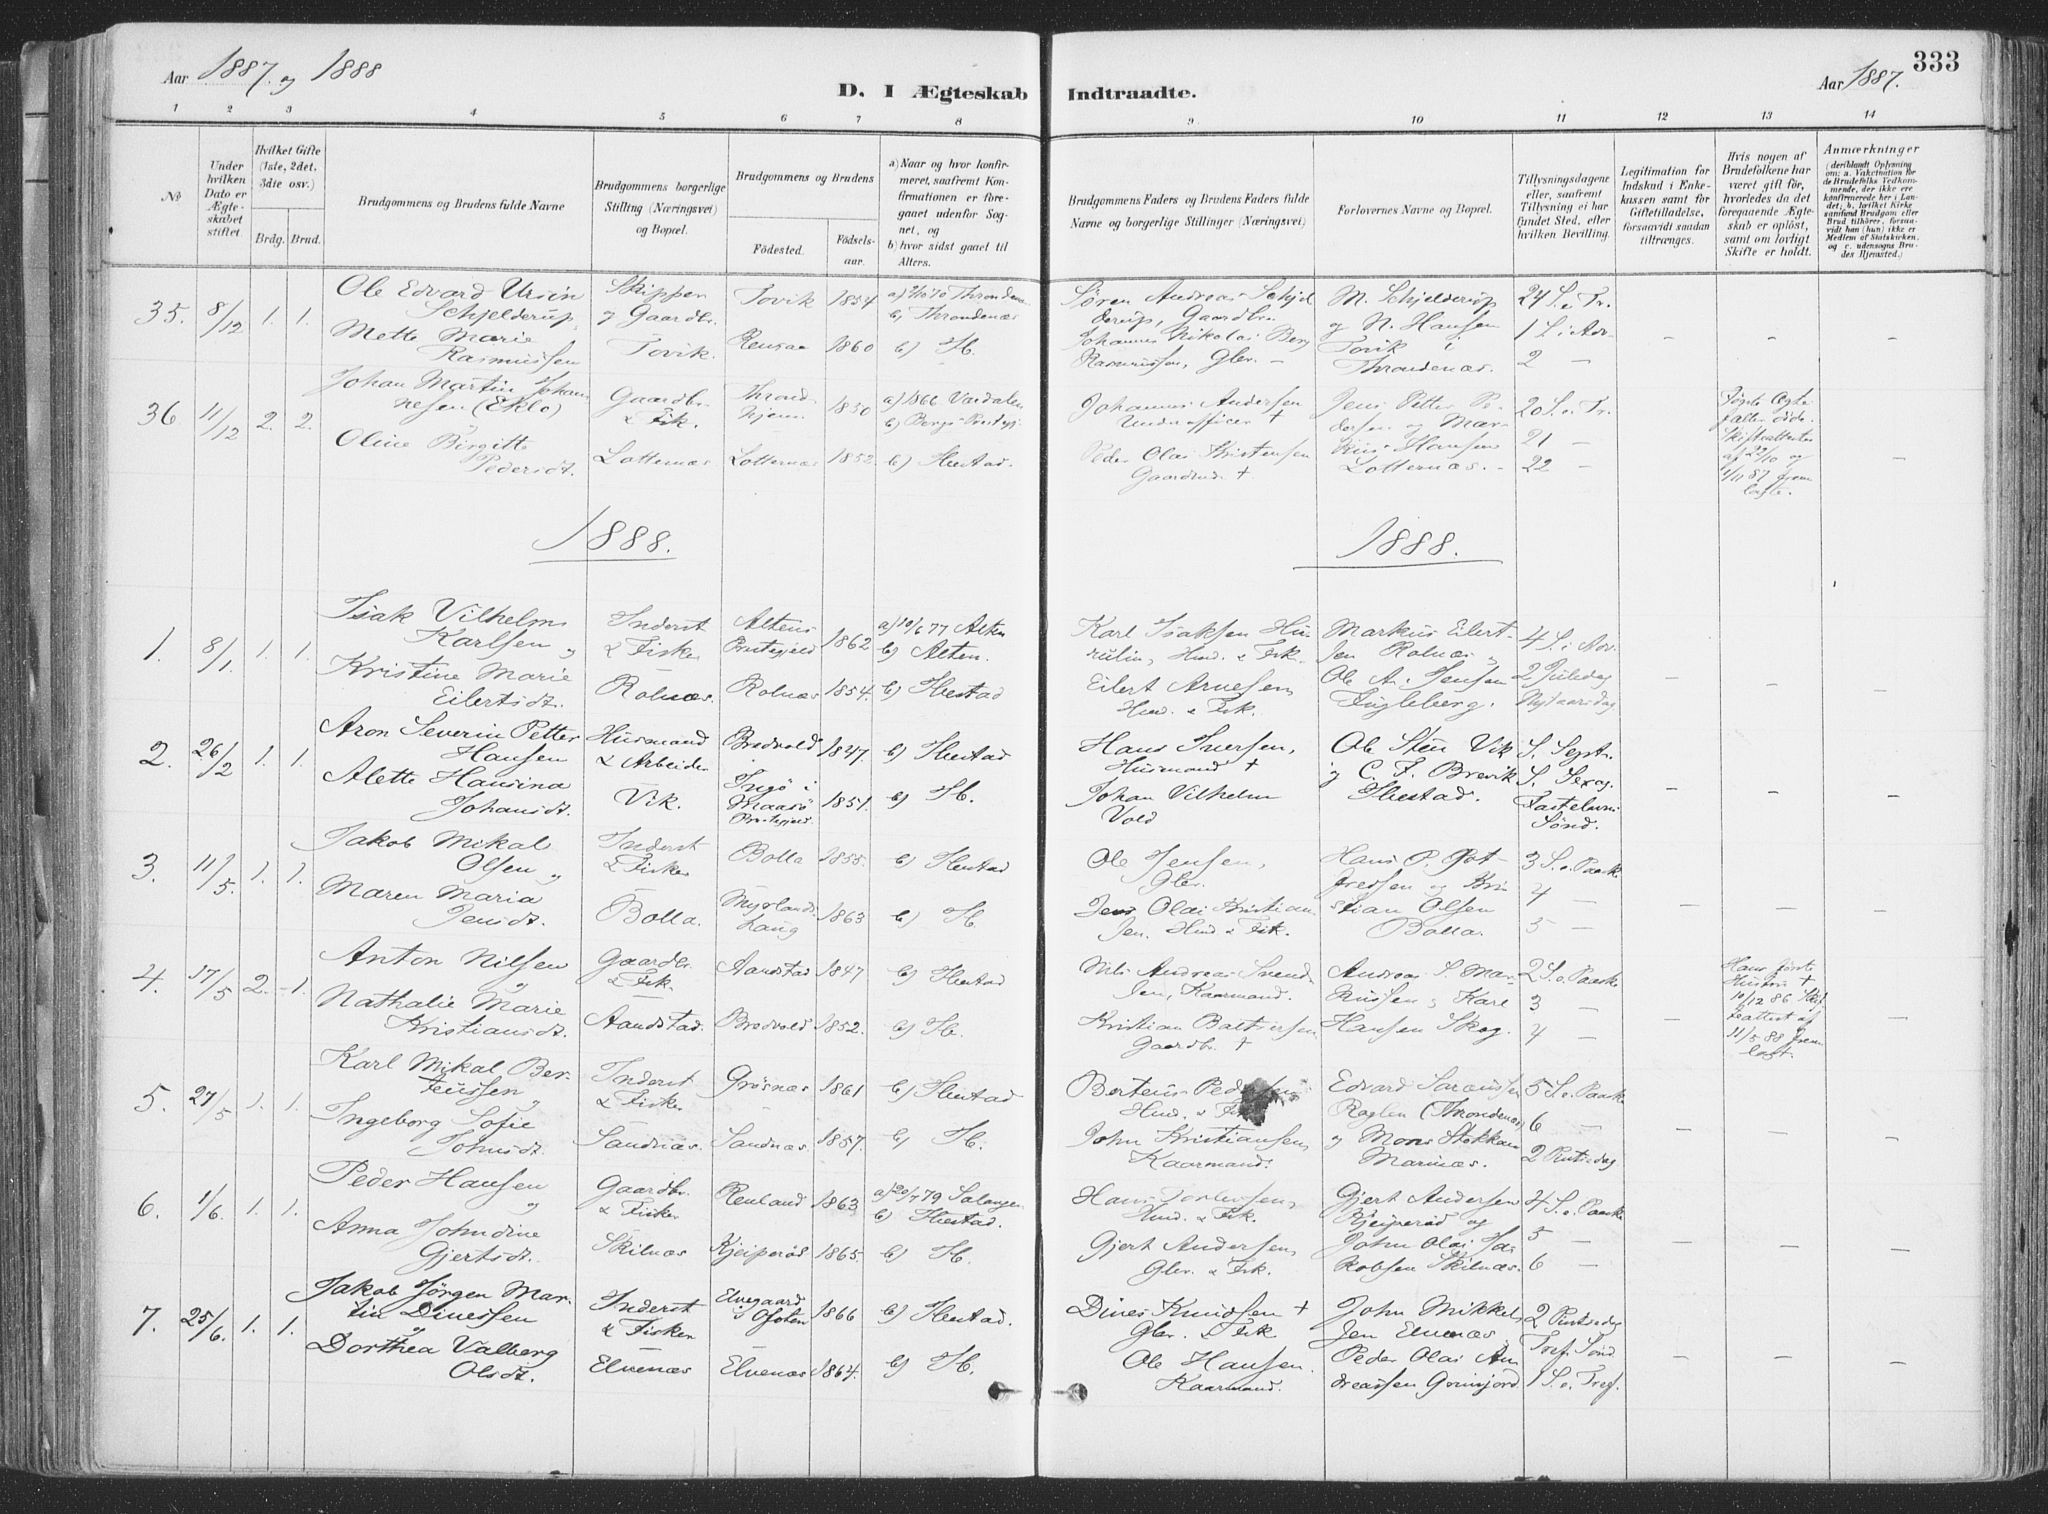 Aar 1887. og 1888
D. I Ægteskab Indtraadte.
Aar 1887.
333
1 2 3 4 5 6 7 8 9 10 11 12 13 14
№
Under hvilken Dato er Ægteskabet stiftet.
Hvilket Gifte (1ste, 2det, 3die osv.)
Brdg. Brud.
Brudgommens og Brudens fulde Navne
Brudgommens borgerlige Stilling (Næringsvei) og Bopæl.
Brudgommens og Brudens
Fødested. Fødsels-aar.
a) Naar og hvor konfirmeret, saafremt Konfirmationen er foregaaet udenfor Sognet, og
b) hvor sidst gaaet til Alters.
Brudgommens Faders og Brudens Faders fulde Navne og borgerlige Stillinger (Næringsvei)
Forlovernes Navne og Bopæl.
Tillysningsdagene eller, saafremt Tillysning ei har fundet Sted, efter hvilken Bevilling.
Legitimation for Indskud i Enkekassen samt for Giftetilladelse, forsaavidt saadan tiltrænges.
Hvis nogen af Brudefolkene har været gift før, hvorledes da det foregaaende Ægteskab er opløst, samt om lovligt Skifte er holdt.
Anmærkninger (deriblandt Oplysning om: a. Vakcination for de Brudefolks Vedkommende, der ikke ere konfirmerede her i Landet; b. hvilket Kirkesamfund Brudgom eller Brud tilhører, forsaavidt han (hun) ikke er Medlem af Statskirken, og c. udensogns Brudes Hjemsted.)
35. 8/12 1. 1.
Ole Edvard Ursin Schjelderup,
Mette Marie Rasmussen
Skipper og Gaardbr. Tovik.
Tovik 1854
Rensaa 1860
b) Throndenæs
b) H.
Søren Andreas Schjelderup, Gaardbr.
Johannes Nikolai Berg Rasmussen, Gbr. -
M. Schjelderup og N. Hansen Tovik i Throndenæs.
24 S. e. Tr.
1 S. i Adv.
2 —
36 11/12 2. 2.
Johan Martin Johannesen (Eklo)
Oline Birgitte Pedersdt.
Gaardbr. & Fisk.
Lotternæs
Throndhjem 1850
Lotternæs 1852.
a) 1866 Værdalen
b) Ibestad.
Johannes Andersen Underofficer +
Peder Olai Kristensen Gaardmd. +
Jens Petter Pedersen og Markus Hansen Lotternæs. -
20 S. e. Tr.
21 —
22
Første Ægtefæller døde. Skifteattester af 29/10 og 1/11 87 fremlagte.
1888.
1888.
1. 8/1. 1. 1.
Isak Vilhelm Karlsen og
Kristine Marie Eilertsdt.
Inderst & Fisker
Rolnæs.
Altens Prestegjeld 1862
Rolnæs 1854.
a) 10/6 77 Alten
b) Alten.
b) Ibestad
Karl Isaksen, Husm. & Fisk.
Eilert Arnesen, Husm. & Fisk.
Markus Eilertsen Rolnæs og
Ole A. Jensen Fugleberg.
4 S. i Adv.
2 Juledag
Nytaarsdag
2. 26/2 1. 1.
Aron Severin Petter Hansen
Alette Hansina Johansdt.
Husmand & Arbeider
Vik.
Brodvold 1847.
Ingø i Maasø Prestegjeld 1851.
b) Ibestad
b) H.
Hans Iversen, Husmand +
Johan Vilhelm Vold
Ole Steen Vik og C. F. Brevik Ibestad.
S. Sept.
S. Sexag.
Fastelavns Sønd.
3. 11/5. 1. 1.
Jakob Mikal Olsen og
Maren Maria Jensdt.
Inderst & Fisker
Bolla.
Bolla 1855.
Myrland 1863
b) Ibestad
b) H.
Ole Jensen, Gbr.
Jens Olai Kristiansen. Husm. & Fisk.
Hans P. Gotfredsen og Kristian Olsen Bolla.
3 S. e. Paaske
4 —
5 —
4. 17/5 2. 1.
Anton Nilsen og
Nathalie Marie Kristiansdt.
Gaardbr. & Fisk.
Aandstad.
Aandstad 1847
Brodvold 1852.
b) Ibestad
b) H.
Nils Andreas Svendsen, Kaarmand.
Kristian Baltsersen Gaardbr. +
Andreas S. Markussen og Karl Hansen Skog.
2 S. e. Paaske
3 —
4 —
Hans første Hustru + 10/12 86 Skifteattest af 11/5 88 fremlagt.
5. 27/5 1. 1.
Karl Mikal Berteussen og
Ingeborg Sofie Johnsdt.
Inderst & Fisker
Sandnæs.
Grøsnæs 1861
Sandnæs 1857.
b) Ibestad
b) H.
Berteus Pedersen Husm. & Fisk
John Kristiansen, Kaarmand.
Edvard (Throndenæs) og Mons Stokkan Marinæs.
5 S. e. Paaske
6 —
2 Pintsedag
6. 1/6. 1. 1.
Peder Hansen og
Anna Johndine Gjertsdt.
Gaardbr. & Fisker
Skilnæs
Renland 1863
Kjeiperød 1865.
a) 20/7 79 Salangen
b) Ibestad.
b) H.
Hans Torleifsen, Husm. & Fisk.
Gjert Andersen, Gbr. & Fisk.
Gjert Andersen Kjeiperød og John Olai Jakobsen Skilnæs.
4 S. e. Paaske
5 —
6 —
7. 25/6. 1. 1.
Jakob Jørgen Martin Dinessen og
Dorthea Valberg Olsdt.
Inderst & Fisker
Elvenæs
Elvegaard i Ofoten 1866
Elvenæs 1864.
b) Ibestad.
b) H.
Dines Knudsen + Gbr. & Fisk
Ole Hansen. Kaarmand.
John Mikkelsen Elvenæs
Peder Olai Andreassen Grinjord
2 Pintsedag
Tref. Sønd.
1 S. e. Tref.